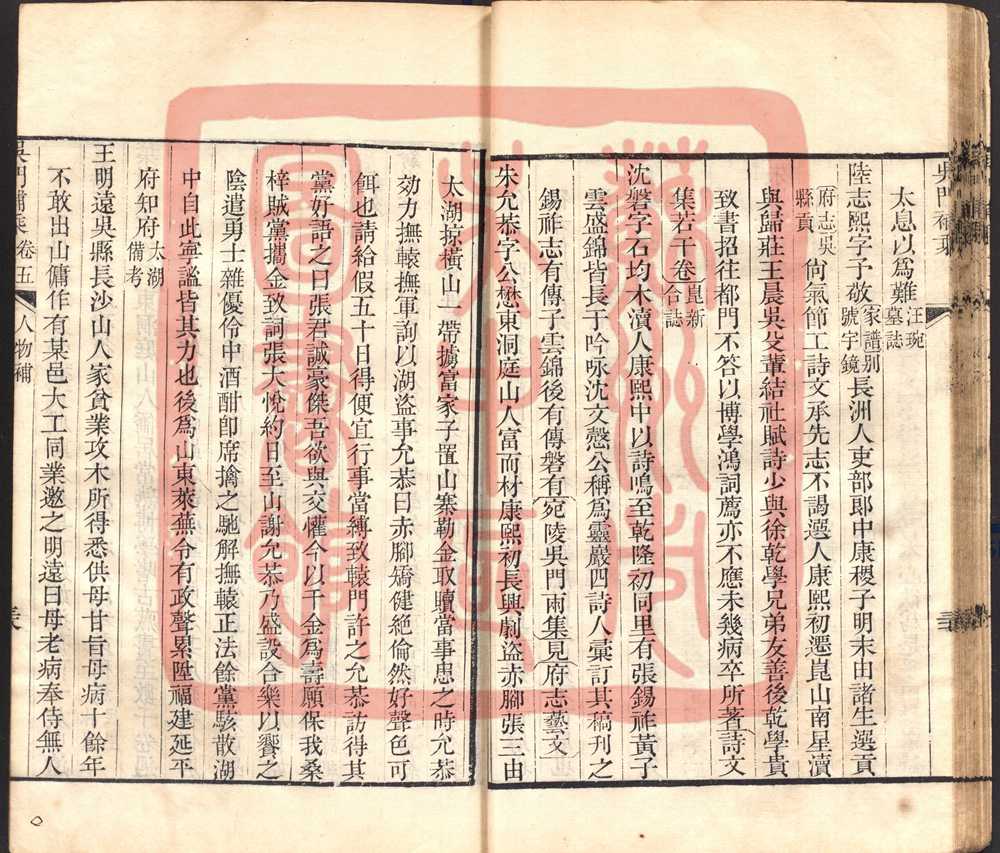 吳門補乘
太息以爲難汪琬墓誌
陸志熙字予敬家譜別號宇鏡長洲人吏部郎中康稷子明末由諸生選貢
府志吳縣貢尙氣節工詩文承先志不謁選人康熙初遷崑山南星瀆
與歸莊王晨吳殳輩結社賦詩少與徐乾學兄弟友善後乾學貴
致書招往都門不答以博學鴻詞薦亦不應未幾病卒所著詩文
集若干卷崑新合誌
沈磐字石均木瀆人康熙中以詩鳴至乾隆初同里有張錫祚黃子
雲盛錦皆長于吟咏沈文慤公稱爲靈巖四詩人彙訂其稿刊之
錫祚志有傳子雲錦後有傳磐有宛陵吳門兩集見府志藝文
朱允恭字公懋東洞庭山人富而材康熙初長興劇盜赤腳張三由
太湖掠橫山一帶擄富家子置山寨勒金取贖當事患之時允恭
効力撫轅撫軍詢以湖盜事允恭曰赤腳矯健絕倫然好聲色可
餌也請給假五十日得便宜行事當縛致轅門許之允恭訪得其
黨好語之曰張君誠豪傑吾欲與交懽今以千金爲壽願保我桑
梓賊黨攜金致詞張大悅約日至山謝允恭乃盛設合樂以饗之
陰遣勇士雜優伶中酒酣卽席擒之馳解撫轅正法餘黨駭散湖
中自此寧謐皆其力也後爲山東萊蕪令有政聲累陞福建延平
府知府太湖備考
王明遠吳縣長沙山人家貧業攻木所得悉供母甘旨母病十餘年
不敢出山傭作有某邑大工同業邀之明遠曰母老病奉侍無人
吳門補乘 卷五 人物補